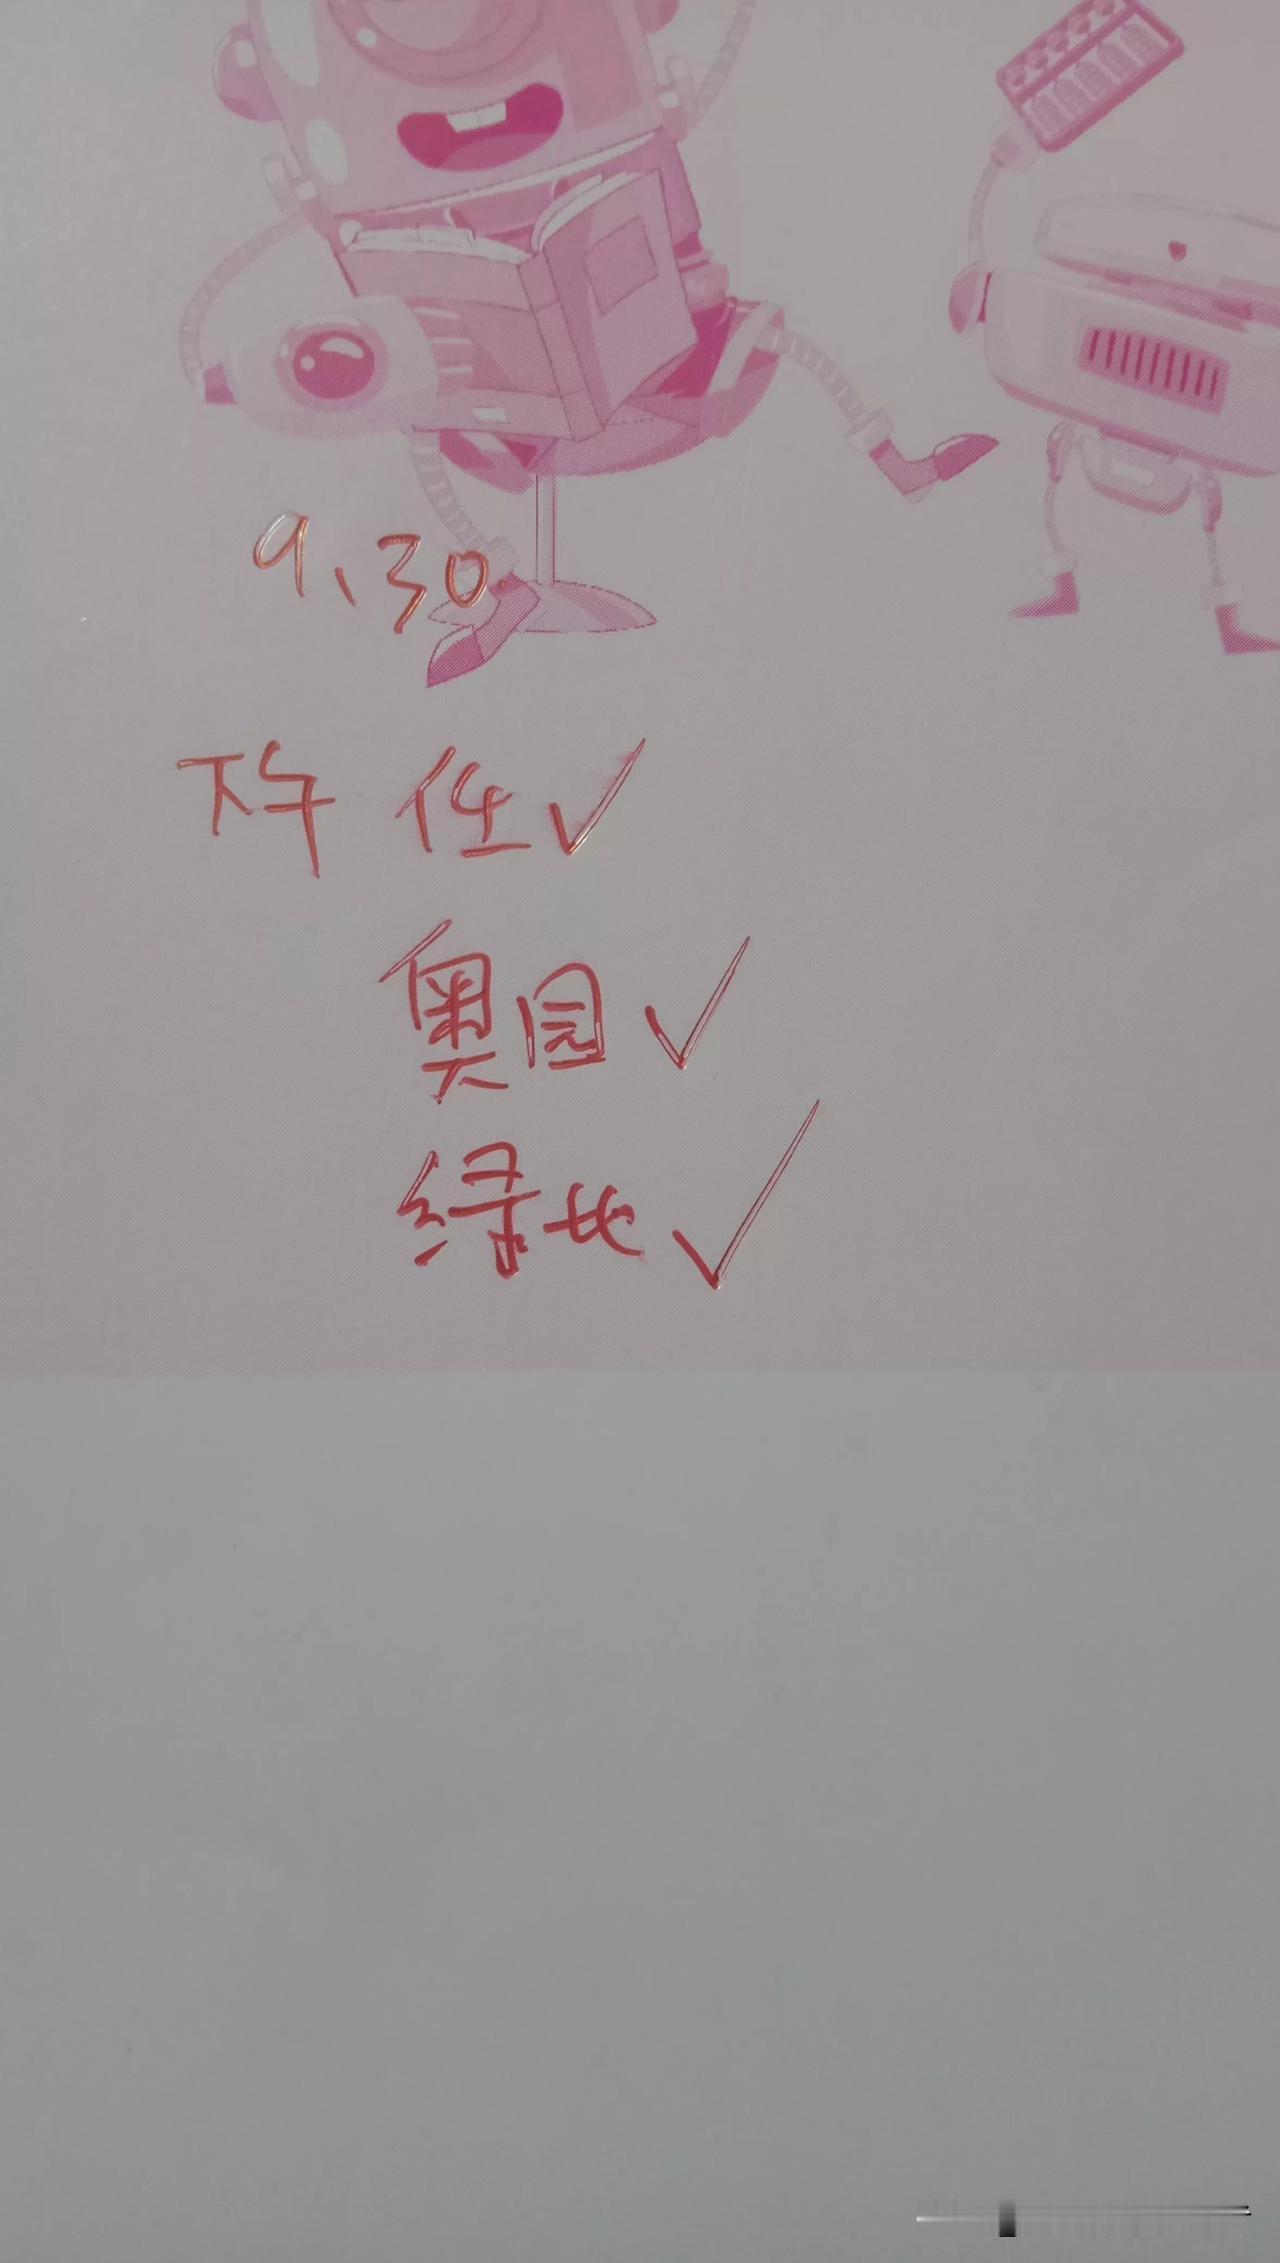 9、30
下午 任✓
奥园✓
绿地✓